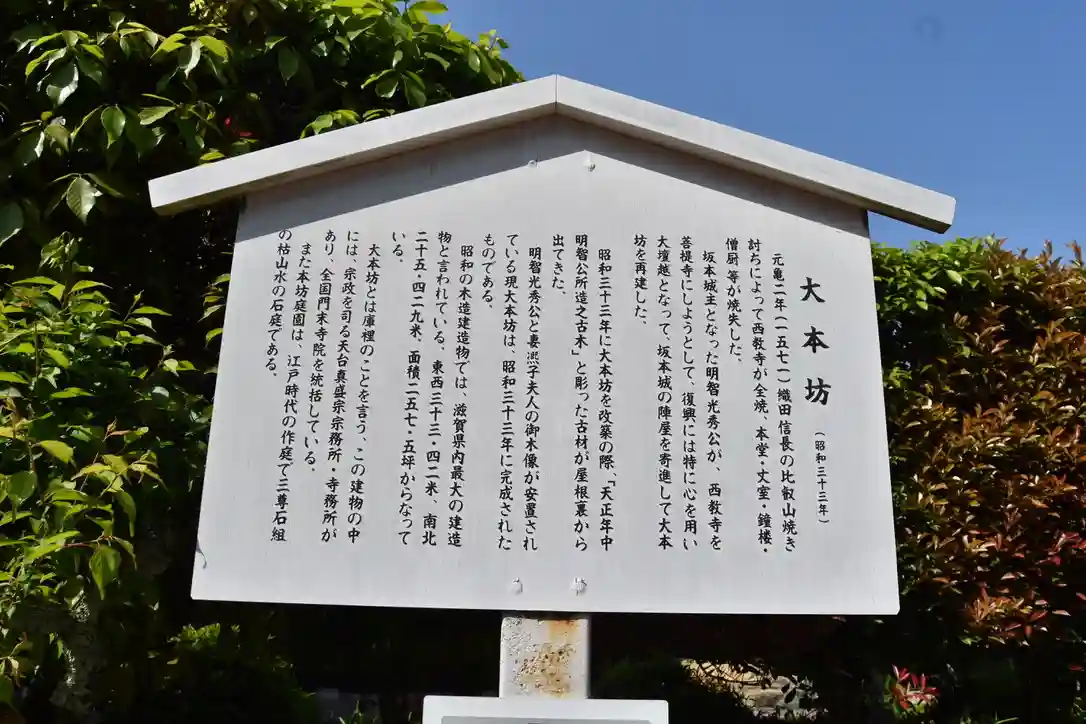 大本坊（昭和三十三年）
元亀二年（一五七一）織田信長の比叡山焼き
討ちによって西教寺が全焼、本堂・丈室・鐘楼・
僧厨等が焼失した。
坂本城主となった明智光秀公が、西教寺を
菩提寺にしようとして、復興には特に心を用い
大壇越となって、坂本城の陣屋を寄進して大本
坊を再建した。
昭和三十三年に大本坊を改築の際、「天正年中
明智公所造之古木」と彫った古材が屋根裏から
出てきた。
明智光秀公と妻煕子夫人の御木像が安置され
ている現大本坊は、昭和三十三年に完成された
ものである。
昭和の木造建造物では、滋賀県内最大の建造
物と言われている、東西三十三・四二米、南北
二十五・四二九米、面積二五七・五坪からなって
いる。
大本坊とは庫裡のことを言う、この建物の中
には、宗政を司る天台真盛宗宗務所・寺務所が
あり、全国門末寺院を統括している。
また本坊庭園は、江戸時代の作庭で三尊石組
の枯山水の石庭である。